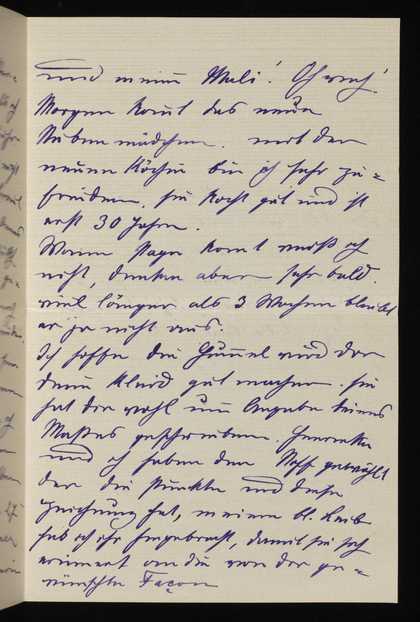 und meine Mali! Oh weh!
Morgen komt das neue
Stubenmädchen. mit der
neuen Köchin bin ich sehr zu=
frieden, sie kocht gut und ist
erst 30 Jahre.
Wann Papa komt weiß ich
nicht, denke aber sehr bald.
viel länger als 3 Wochen bleibt
er ja nicht aus.
Ich hoffe die Hummel wird dir
dein Kleid gut machen. sie
hat dir wohl um Angabe deines
Maßes geschrieben. Henriette
und ich haben den Stoff gewählt
der die Punkte und diese
Zeichnung hat, meine bl. Leib
hab ich ihr hingebracht, damit sie sich
erinnert an die von dir ge=
wünschte Façon